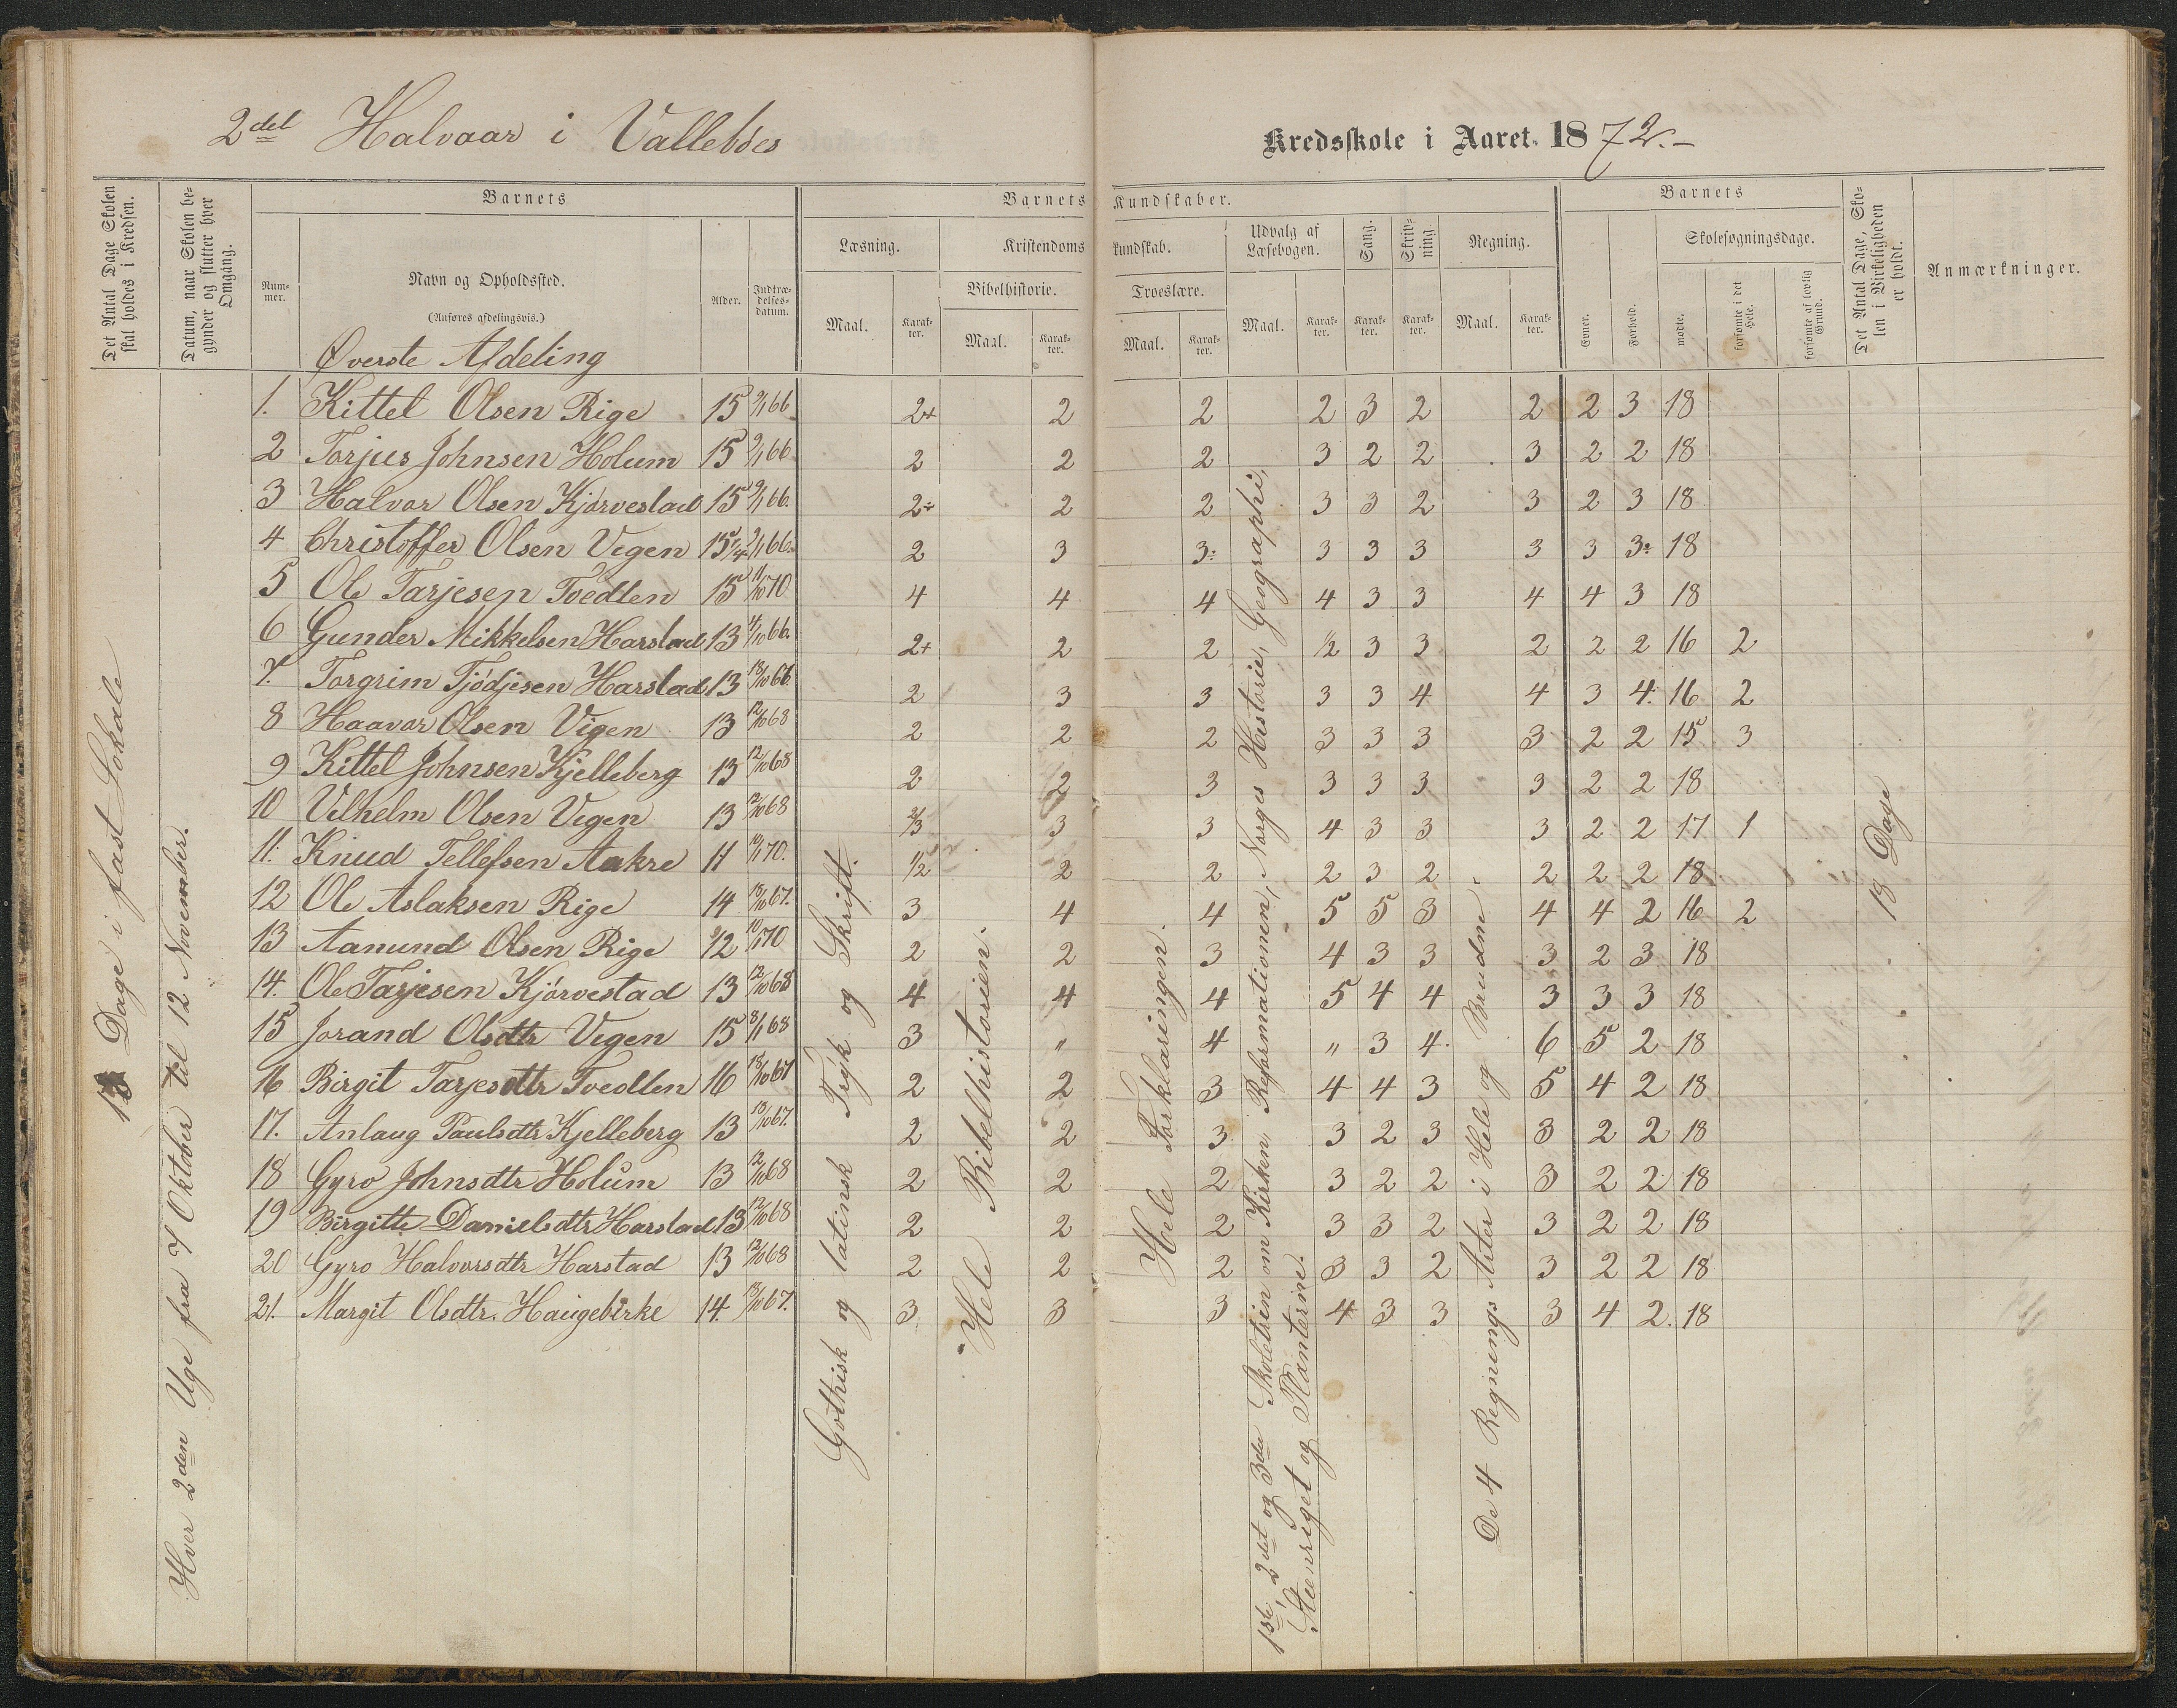 2det Halvaar i Vallebøes Kredsskole i Aaret 1872.-
Det Antal Dage Skolen skal holdes i Kredsen.
Datum, naar Skolen begynder og slutter hver Omgang.
Barnets
Nummer.
Navn og Opholdssted.
(Anføres afdelingsvis.)
Alder.
Indtrædelsesdatum.
Barnets Kundskaber.
Læsning.
Maal.
Karakter.
Kristendomskundskab.
Bibelhistorie.
Maal.
Karakter.
Troeslære.
Maal.
Karakter.
Udvalg af Læsebogen.
Maal.
Karakter.
Sang.
Karakter.
Skrivning.
Karakter.
Regning.
Maal.
Karakter.
Barnets
Evner.
Forhold.
Skolesøgningsdage.
mødte.
forsømte i det Hele.
forsømte af lovlig Grund.
Det Antal Dage, Skolen i Virkeligheden er holdt.
Anmærkninger.
Øverste Afdeling
1. Kittel Olsen Rige 15 9/1 66 2+ 2 2 2 3 2 2 2 3 18
2 Torjus Johnsen Holum 15 9/1 66 2 2 2 3 2 2 3 2 2 18
3 Halvor Olsen Kjørvestad 15 9/1 66. 2÷ 2 2 3 3 2 3 2 3 18
4 Christoffer Olsen Vegen 15 1/4 9/1 66. 2 3 3: 3 3 3 3 3 3: 18
5 Ole Tarjesen Tvedten 15 11/10 70 4 4 4 4 3 3 4 4 3 18
6 Gunder Mikkelsen Harstad 13 4/10 66. 2+ 2 2 1/2 3 3 2 2 2 16 2
7. Torgrim Tjødjesen Harstad 13 18/10 66 2 3 3 3 3 4 4 3 4. 16 2
8 Haavor Olsen Vigen 13 12/10 68 2 2 2 3 3 3 3 2 2 15 3
9 Kittel Johnsen Kjelleberg 13 12/10 68 2 2 3 3 3 3 3 2 2 18
10 Vilhelm Olsen Vegen 13 12/10 68 2/3 3 3 4 3 3 3 2 2 17 1
11. Knud Tellefsen Aakre 11 10/1 70. 1/2 2 2 2 3 2 2 2 2 18
12 Ole Aslaksen Rige 14 18/10 67. 3 4 4 5 5 3 4 4 2 16 2
13 Aanund Olsen Rige 12 10/1 70 2 2 3 4 3 3 3 2 3 18
14. Ole Tarjesen Kjørvestad 13 12/10 68 4 4 4 5 4 4 3 3 3 18
15 Jorand Olsdtr Vegen 15 8/1 68 3 " 4 " 3 4. 6 5 2 18
16 Birgit Tarjesdtr Tvedten 16 18/10 67 2 2 3 4 4 3 5 4 2 18
17. Anlaug Paulsdtr Kjelleberg 13 18/10 67. 2 2 3 3 2 3 3 2 2 18
18 Gyro Johnsdtr Holum 13 12/10 68 2 2 2 3 2 2 3 2 2 18
19 Birgitte Danielsdtr Harstad 13 12/10 68 2 2 2 3 3 2 3 2 2 18
20 Gyro Halvorsdtr Harstad 13 12/10 68 2 2 2 3 3 2 3 2 2 18
21. Margit Olsdtr. Haugebirke 14. 18/10 67. 3 3 3 4 3 3 3 4 2. 18
18 Dage i fast Lokale
Hver 2den Uge fra 7 Oktober til 12 November.
Gothisk og latinsk Tryk og Skrift.
Hele Bibelhistorien.
Hele Forklaringen.
1ste, 2det og 3die Skoletrin om Kirken, Reformationen, Norges Historie, Geographi,
Steenriget og Planterne.
De 4 Regnings Arter i Hele og Brudne
18 Dage